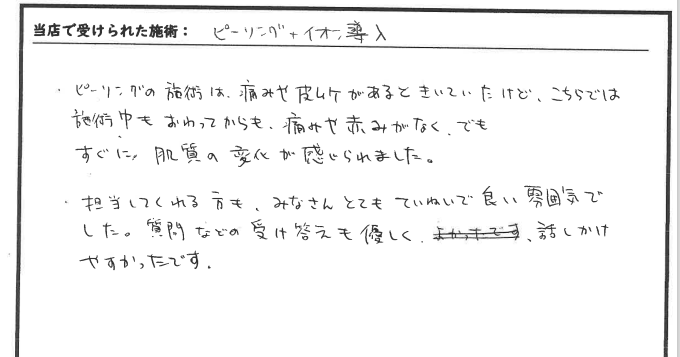 当店で受けられた施術： ピーリング＋イオン導入
・ピーリングの施術は、痛みや皮ムケがあるときいていたけど、こちらでは
施術中もおわってからも、痛みや赤みがなく、でも
すぐに、肌質の変化が感じられました。
・担当してくれる方も、みなさんとてもていねいで良い雰囲気で
した。質問などの受け答えも優しく、よかったです、話しかけ
やすかったです.